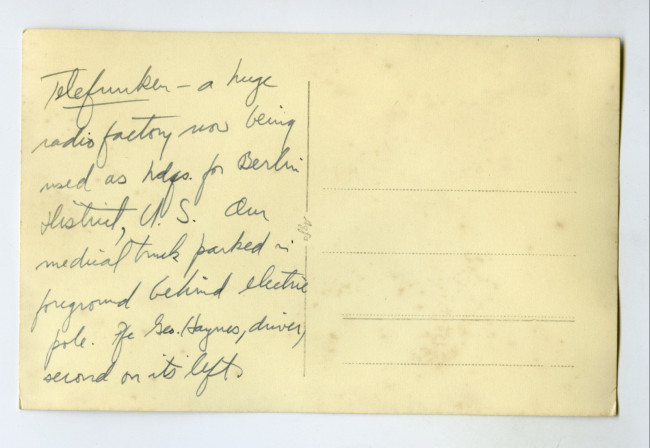 Telefunken – a huge
radio factory now being
used as hdqs. for Berlin
District, U.S. Our
medical truck parked in
foreground behind electric
pole. Pfc Geo. Haynes, driver,
second on its left.
Agfa